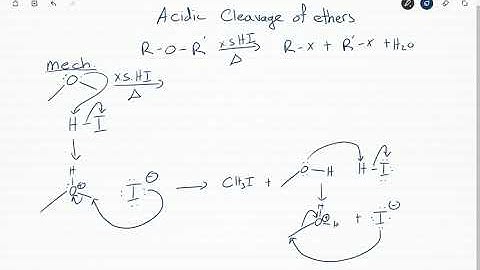 Acidic Cleavage of ethers
R-O-R' xs HI Δ R-X + R'-X + H2O
mech.
O xs. HI Δ
H-I
H
O⊕ I⊖ CH3I + O-H H-I
H
O⊕ H + I⊖